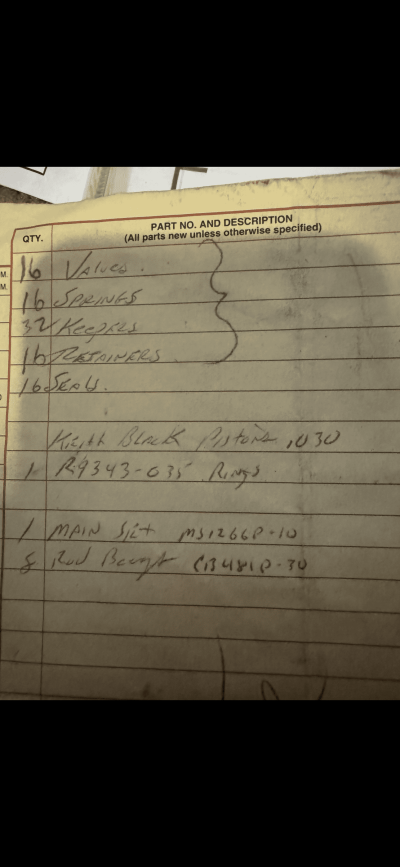 QTY.
PART NO. AND DESCRIPTION
(All parts new unless otherwise specified)
M.
M.
16 Valves.
16 SPRINGS
32 Keepers
16 RETAINERS
16 SEALS.
Keith Black Pistons .030
1 R9343-035 Rings
1 MAIN Set MS1266P-10
8 Rod CB481P-30